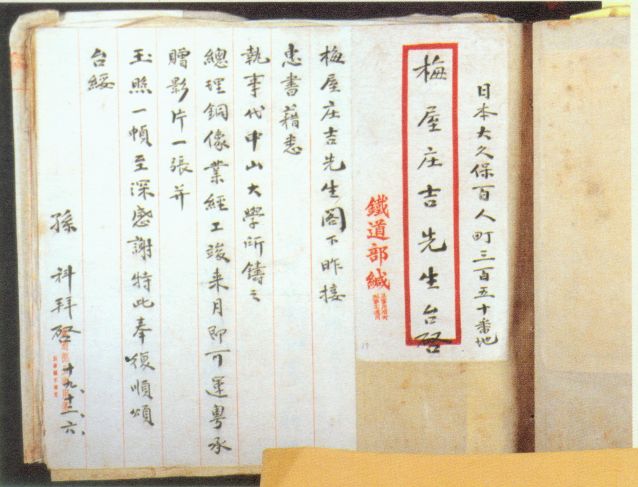 日本大久保百人町三百五十番地
梅屋庄吉先生台啓
鐵道部緘
梅屋庄吉先生阁下昨接
惠書藉悉
執事代中山大學所鑄之
總理銅像業經工竣来月即可運粤承
贈影片一張并
玉照一幀至深感謝特此奉復順頌
台綏
孫科拜啓 十九、十二、六、